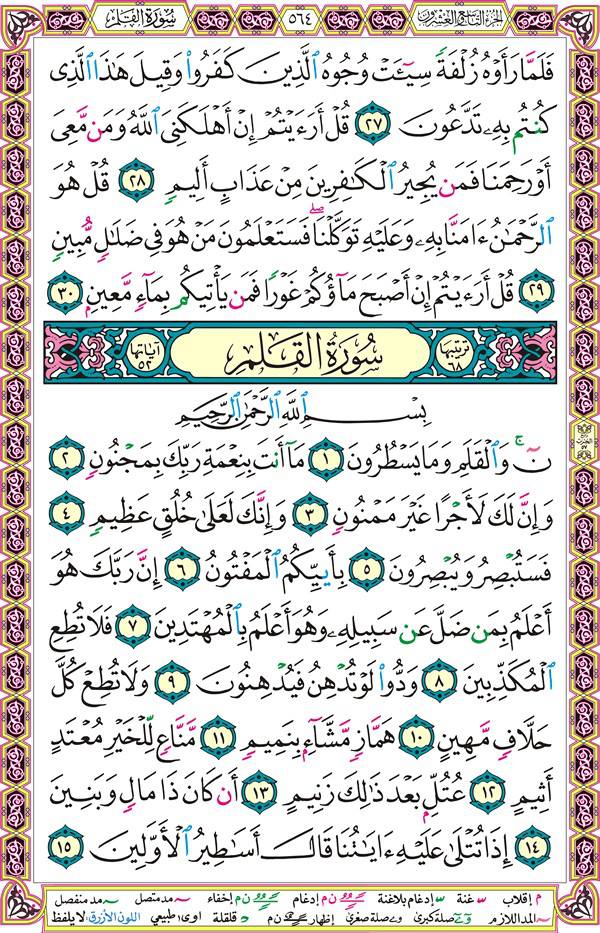 الجزء التاسع والعشرون
٥٦٤
سُورَةُ القَلَمِ
فَلَمَّا رَأَوْهُ زُلْفَةً سِيٓـَٔتْ وُجُوهُ ٱلَّذِينَ كَفَرُوا۟ وَقِيلَ هَـٰذَا ٱلَّذِى
كُنتُم بِهِۦ تَدَّعُونَ ٢٧ قُلْ أَرَءَيْتُمْ إِنْ أَهْلَكَنِىَ ٱللَّهُ وَمَن مَّعِىَ
أَوْ رَحِمَنَا فَمَن يُجِيرُ ٱلْكَـٰفِرِينَ مِنْ عَذَابٍ أَلِيمٍ ٢٨ قُلْ هُوَ
ٱلرَّحْمَـٰنُ ءَامَنَّا بِهِۦ وَعَلَيْهِ تَوَكَّلْنَا ۖ فَسَتَعْلَمُونَ مَنْ هُوَ فِى ضَلَـٰلٍ مُّبِينٍ
٢٩ قُلْ أَرَءَيْتُمْ إِنْ أَصْبَحَ مَآؤُكُمْ غَوْرًا فَمَن يَأْتِيكُم بِمَآءٍ مَّعِينٍۭ ٣٠
ترتيبها ٦٨
سُورَةُ القَلَمِ
آياتها ٥٢
بِسْمِ ٱللَّهِ ٱلرَّحْمَـٰنِ ٱلرَّحِيمِ
نٓ ۚ وَٱلْقَلَمِ وَمَا يَسْطُرُونَ ١ مَآ أَنتَ بِنِعْمَةِ رَبِّكَ بِمَجْنُونٍ ٢
وَإِنَّ لَكَ لَأَجْرًا غَيْرَ مَمْنُونٍ ٣ وَإِنَّكَ لَعَلَىٰ خُلُقٍ عَظِيمٍ ٤
فَسَتُبْصِرُ وَيُبْصِرُونَ ٥ بِأَييِّكُمُ ٱلْمَفْتُونُ ٦ إِنَّ رَبَّكَ هُوَ
أَعْلَمُ بِمَن ضَلَّ عَن سَبِيلِهِۦ وَهُوَ أَعْلَمُ بِٱلْمُهْتَدِينَ ٧ فَلَا تُطِعِ
ٱلْمُكَذِّبِينَ ٨ وَدُّوا۟ لَوْ تُدْهِنُ فَيُدْهِنُونَ ٩ وَلَا تُطِعْ كُلَّ
حَلَّافٍ مَّهِينٍ ١٠ هَمَّازٍ مَّشَّآءٍۭ بِنَمِيمٍ ١١ مَّنَّاعٍ لِّلْخَيْرِ مُعْتَدٍ
أَثِيمٍ ١٢ عُتُلٍّۭ بَعْدَ ذَٰلِكَ زَنِيمٍ ١٣ أَن كَانَ ذَا مَالٍ وَبَنِينَ
١٤ إِذَا تُتْلَىٰ عَلَيْهِ ءَايَـٰتُنَا قَالَ أَسَـٰطِيرُ ٱلْأَوَّلِينَ ١٥
م إقلاب س غنة س إدغام بلاغنة ن م إدغام ن م إخفاء ~ مد متصل ~ مد منفصل
~ المد اللازم و ے صلة كبرى و ے صلة صغرى إظهار ن م د قلقلة اوى، ر طبيعي اللون الأزرق: لا يلفظ